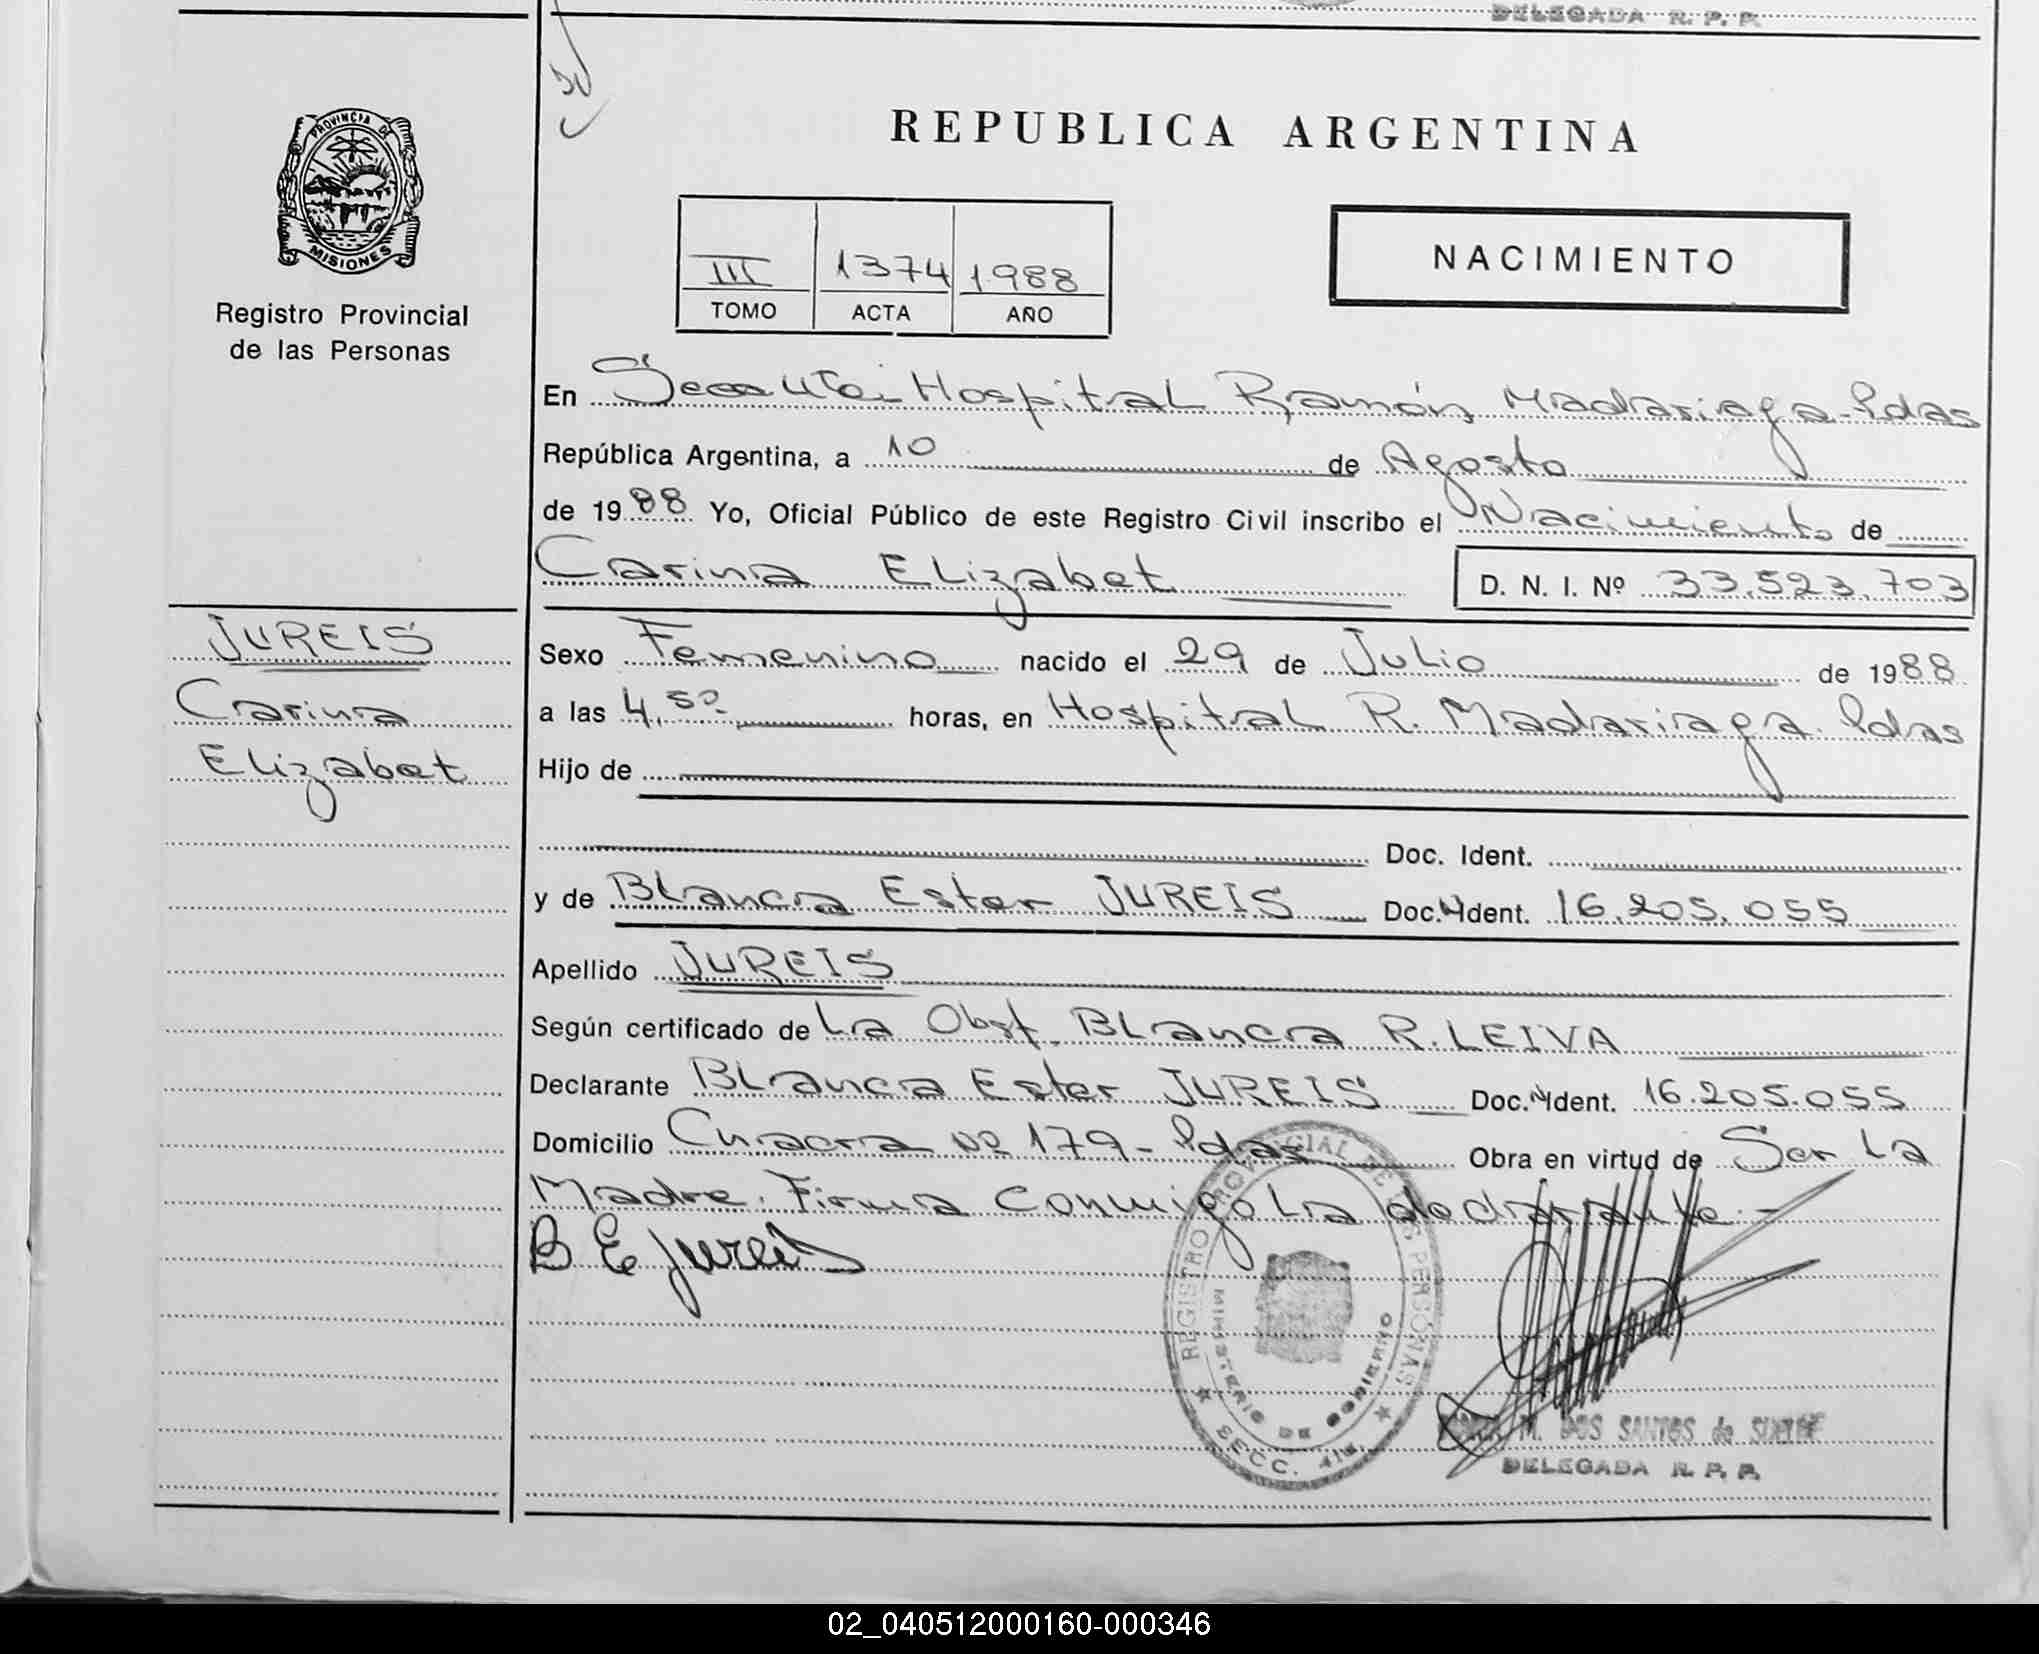 DELEGADA R. P. P.
PROVINCIA DE
MISIONES
Registro Provincial
de las Personas
REPUBLICA ARGENTINA
III 1374 1988
TOMO ACTA AÑO
NACIMIENTO
En Hospital Ramón Madariaga - Pdas
República Argentina, a 10 de Agosto
de 1988 Yo, Oficial Público de este Registro Civil inscribo el Nacimiento de
Carina Elizabet D. N. I. Nº 33.523.703
JUREIS
Carina
Elizabet
Sexo Femenino nacido el 29 de Julio de 1988
a las 4,50. horas, en Hospital R. Madariaga. Pdas
Hijo de
Doc. Ident.
y de Blanca Ester JUREIS Doc. Ident. 16.205.055
Apellido JUREIS
Según certificado de La Obst. Blanca R. LEIVA
Declarante Blanca Ester JUREIS Doc. Ident. 16.205.055
Domicilio Chacra Nº 179 - Pdas Obra en virtud de Ser La
Madre. Firma Conmigo La declarante. -
B E Jureis
REGISTRO PROVINCIAL DE LAS PERSONAS
MINISTERIO DE GOBIERNO
SECC. 4ta
M. DOS SANTOS de
DELEGADA R. P. P.
02_040512000160-000346